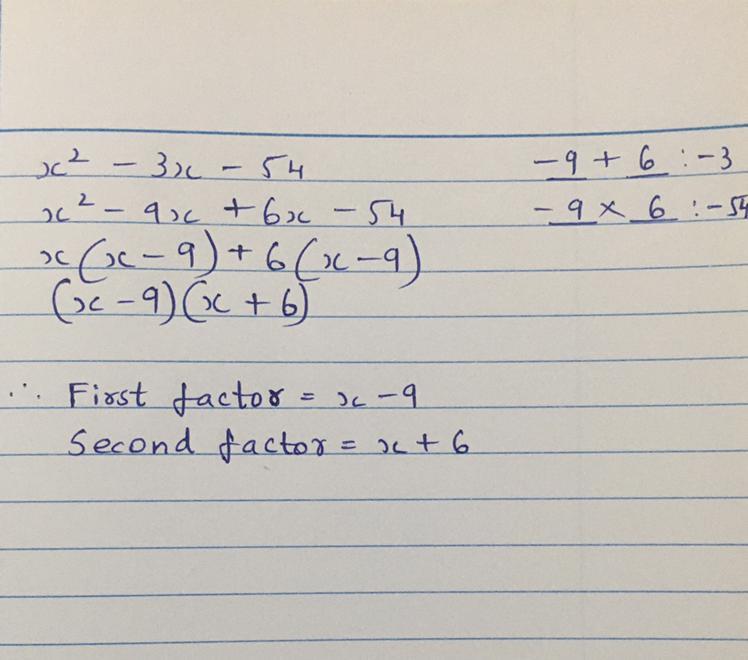 x² - 3x - 54
-9 + 6 : -3
x² - 9x + 6x - 54
-9 × 6 : -54
x(x - 9) + 6(x - 9)
(x - 9)(x + 6)
∴ First factor = x - 9
Second factor = x + 6